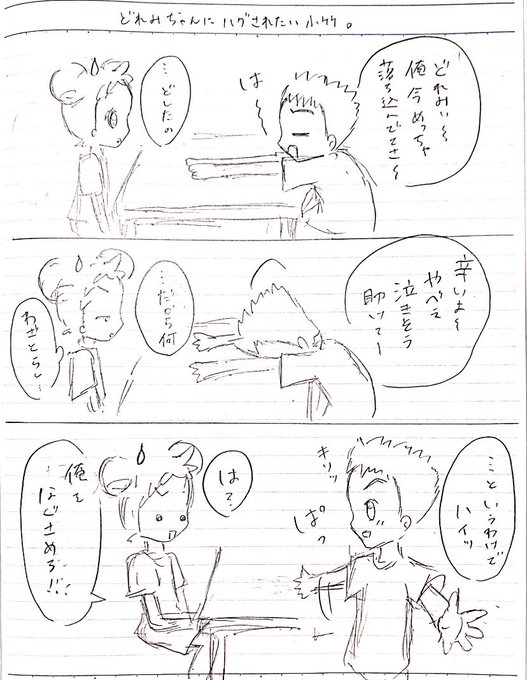 どれみちゃんにハグされたい小竹。
どれみぃ〜
俺今めっちゃ
落ち込んでてさ〜
は〜
…どしたの
辛いよ〜
やべえ
泣きそう
助けて〜
…だから何
わざとらし〜
…というわけで
ハイッ
キリッ
ぱっ
は?
俺を
なぐさめろ!!